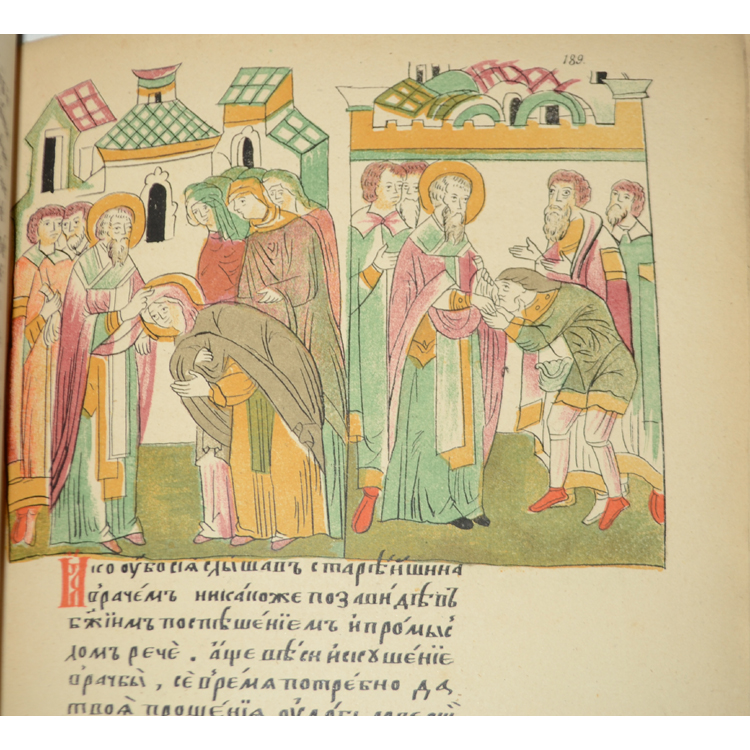 189.
Ꙗко оубо сїѧ слышавъ старѣйшина
врачемъ никакоже позавидѣвъ
бж҃їимъ поспѣшенїемъ и промыс
ломъ речѐ. а҆ще вѣси искꙋшенїе
врачбы̀, сѐ время потребно да,
твоѧ̀ прошенїѧ